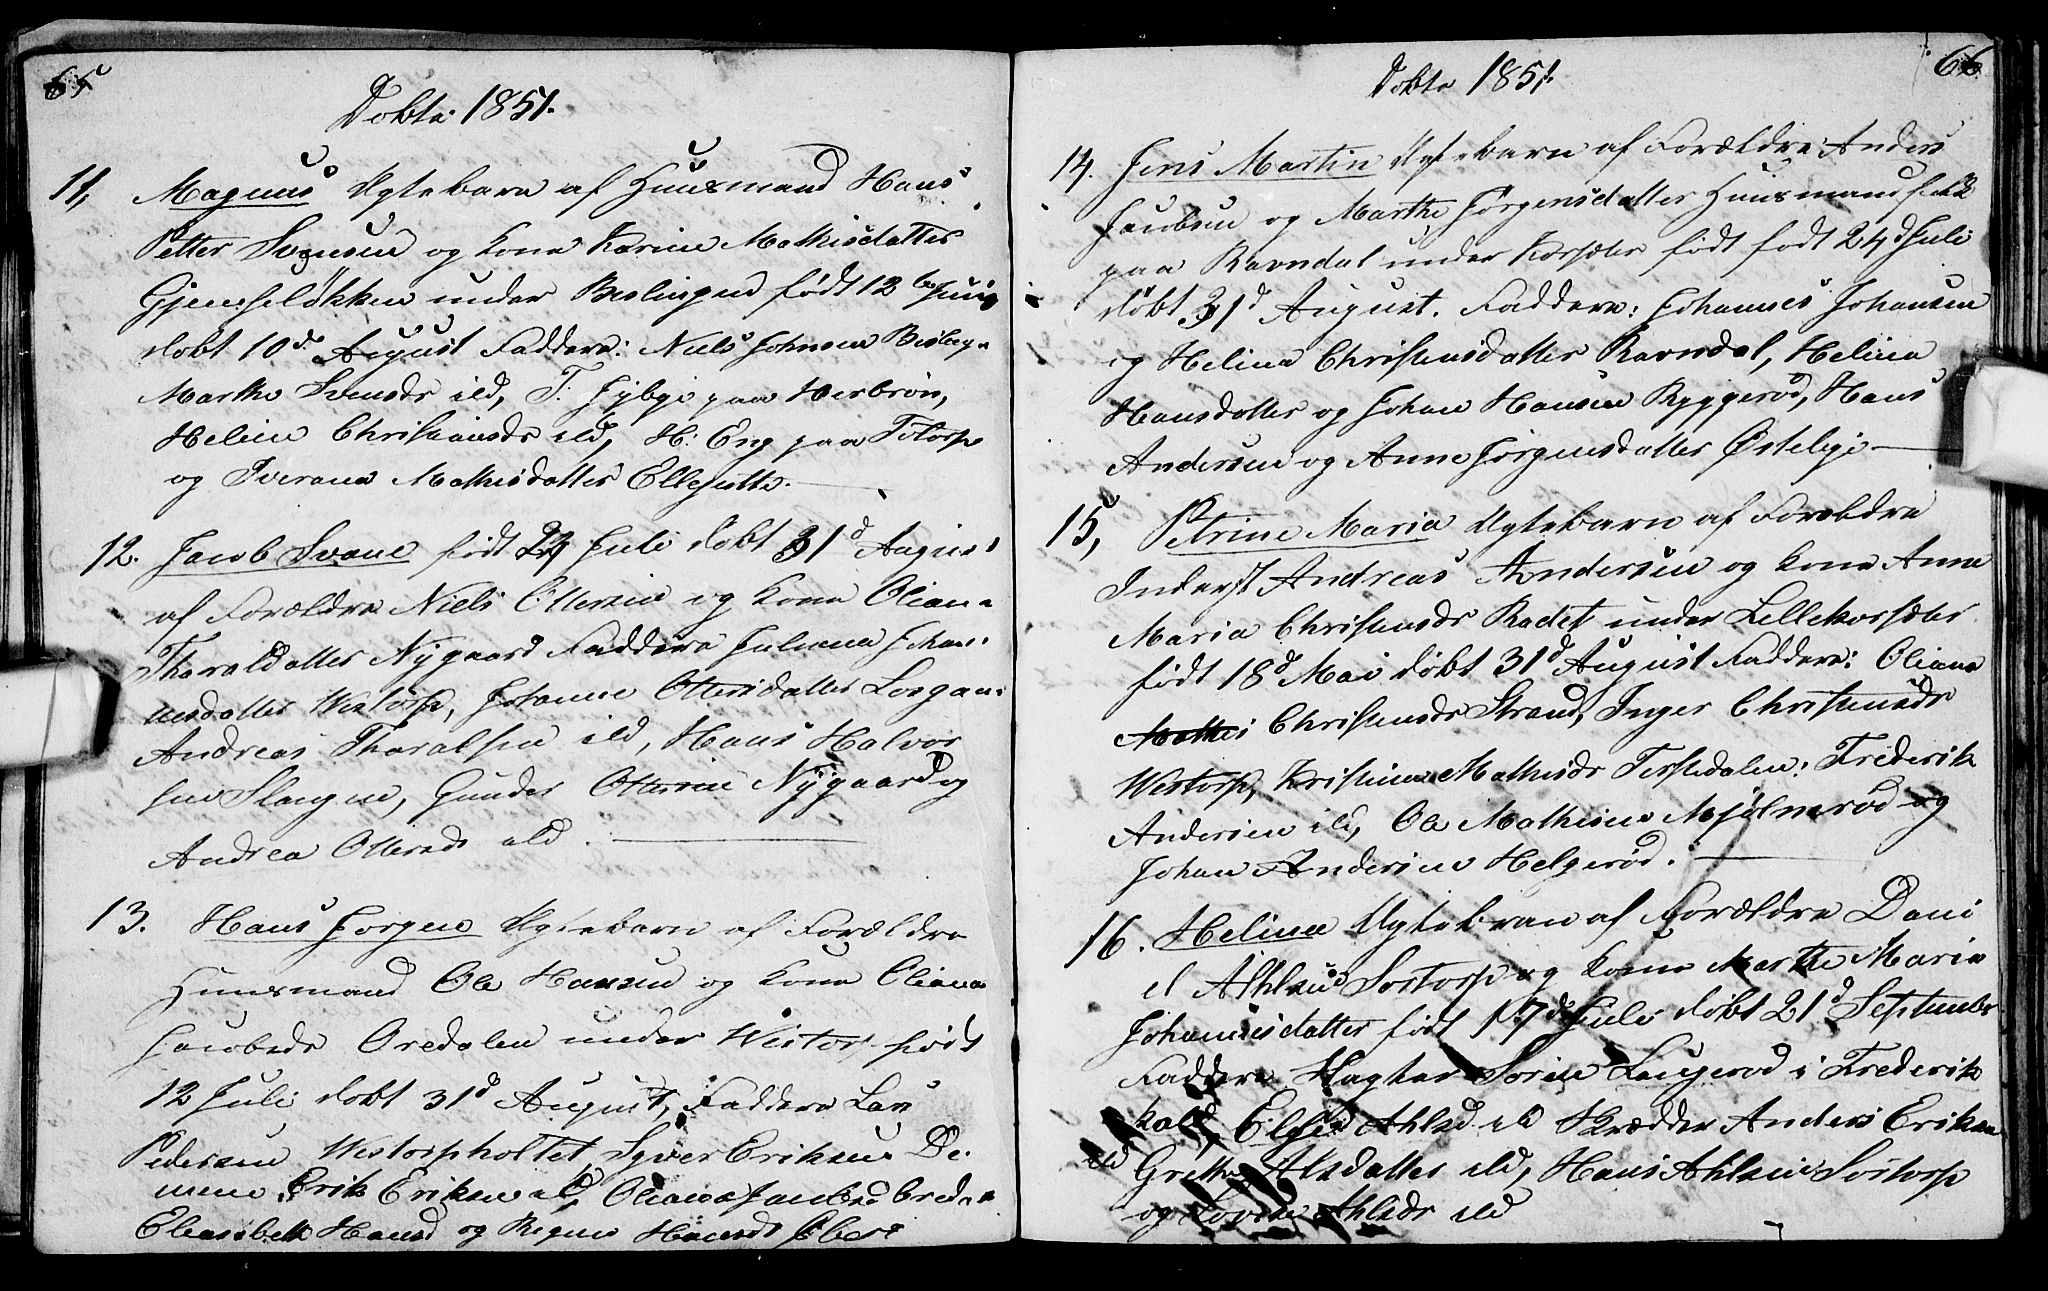 65
Døbte 1851.
11, Magnus Ægtebarn af Huusmand Hans
Petter Svensen og Kone Karine Mathisdatter
Gjensesløkken under Beslingen født 12 Juni
døbt 10d August Faddere: Niels Johnsen
Marthe Svensdr ibd, T. Fybye paa Herbrøn,
Heline Christiansdr ibd, H: Eng paa Titorp
og Iverana Mathisdatter
12. Jacob Svane født Juli døbt 31d August
af Forældre Niels Ottersen og Kone Olian
Tharaldatter Nygaard Faddere Juliana Johan
nesdatter Westorp, Johanne Ottersdatter
Andreas Tharalsen ibd, Hans Halvor
sen Slangen, Gunder Ottersen Nygaard og
Andrea Ottersd ibd.
13. Hans Jørgen Ægtebarn af Forældre
Huusmand Ole Hansen og Kone Oliana
Jacobsdr Oredalen under Westorp født
12 Juli døbt 31d August, Faddere Lars
Pedersen Westorpholtet Syver Eriksen De
mene, Erik Eriksen ibd, Oliana Jacobsd Oredal
Elensabeth Hansd og Regine Hansdr
66
Døbte 1851.
14. Jens Martin Ægtebarn af Forældre Anders
Jacobsen og Marthe Jörgensdatter Huusmandsfolk
paa Ravndal under Korsæter født født 24d Juli
døbt 31d August. Faddere: Johannes Johansen
og Helina Christensdatter Ravndal, Helina
Hansdatter og Johan Hansen Ryggerød, Hans
Andersen og Anne Jörgensdatter Østebye
15, Petrine Maria Ægtebarn af Forældre
Inderst Andreas Andersen og Kone Anne
Maria Christensdr Rødet under Lillekorsæter
født 18d Mai døbt 31d August Faddere: Oliana
Mathis Christensdr Strand, Inger Christensdr
Westorp, Kristine Mathisdr Torpedalen: Frederik
Andersen ibd, Ole Mathisen Mjølnerød og
Johan Andersen Helgerød.
16. Helina Ægtebran af Forældre Dani
el Ahlsen Sostorp og Kone Marthe Maria
Johannisdatter født 17d Juli døbt 21d September
Faddere Sørine Laugerød i Frederik
hald, Elsea Ahlsd ib Skrædder Anders Eriksen
ibd Grethe Alsdatter ibd, Hans Ahlsen Sostorp
og Lovise Ahlsdr ibd